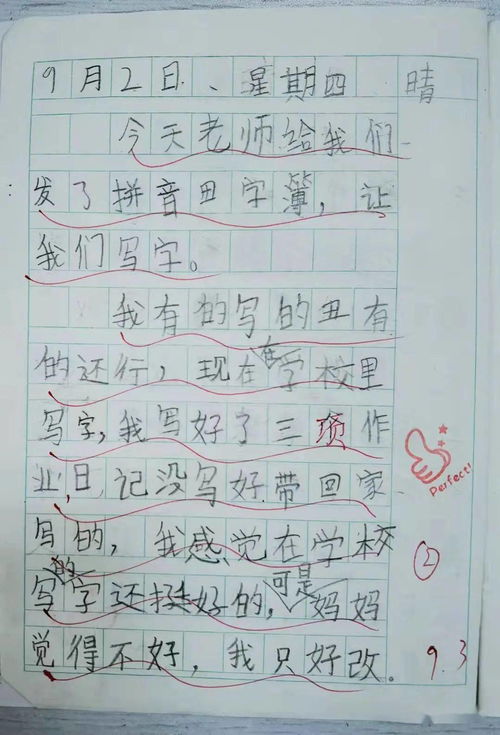 9月2日、星期四 晴
今天老师给我们
发了拼音田字簿，让
我们写字。
我有的写的丑有
的还行，现在在学校里
写字，我写好了三项作
业，日记没写好带回家
写的，我感觉在学校
写的字还挺好的，可是妈妈
觉得不好，我只好改.
Perfect!
②
9.3